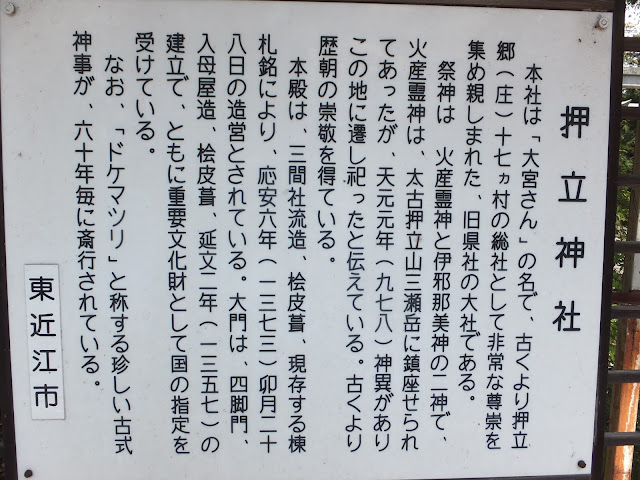 押立神社
本社は「大宮さん」の名で、古くより押立
郷(庄)十七ヵ村の総社として非常な尊崇を
集め親しまれた、旧県社の大社である。
祭神は 火産霊神と伊邪那美神の二神で、
火産霊神は、太古押立山三瀬岳に鎮座せられ
てあったが、天元元年(九七八)神異があり
この地に遷し祀ったと伝えている。古くより
歴朝の崇敬を得ている。
本殿は、三間社流造、桧皮葺、現存する棟
札銘により、応安六年(一三七三)卯月二十
八日の造営とされている。大門は、四脚門、
入母屋造、桧皮葺、延文二年(一三五七)の
建立で、ともに重要文化財として国の指定を
受けている。
なお、「ドケマツリ」と称する珍しい古式
神事が、六十年毎に斎行されている。
東近江市